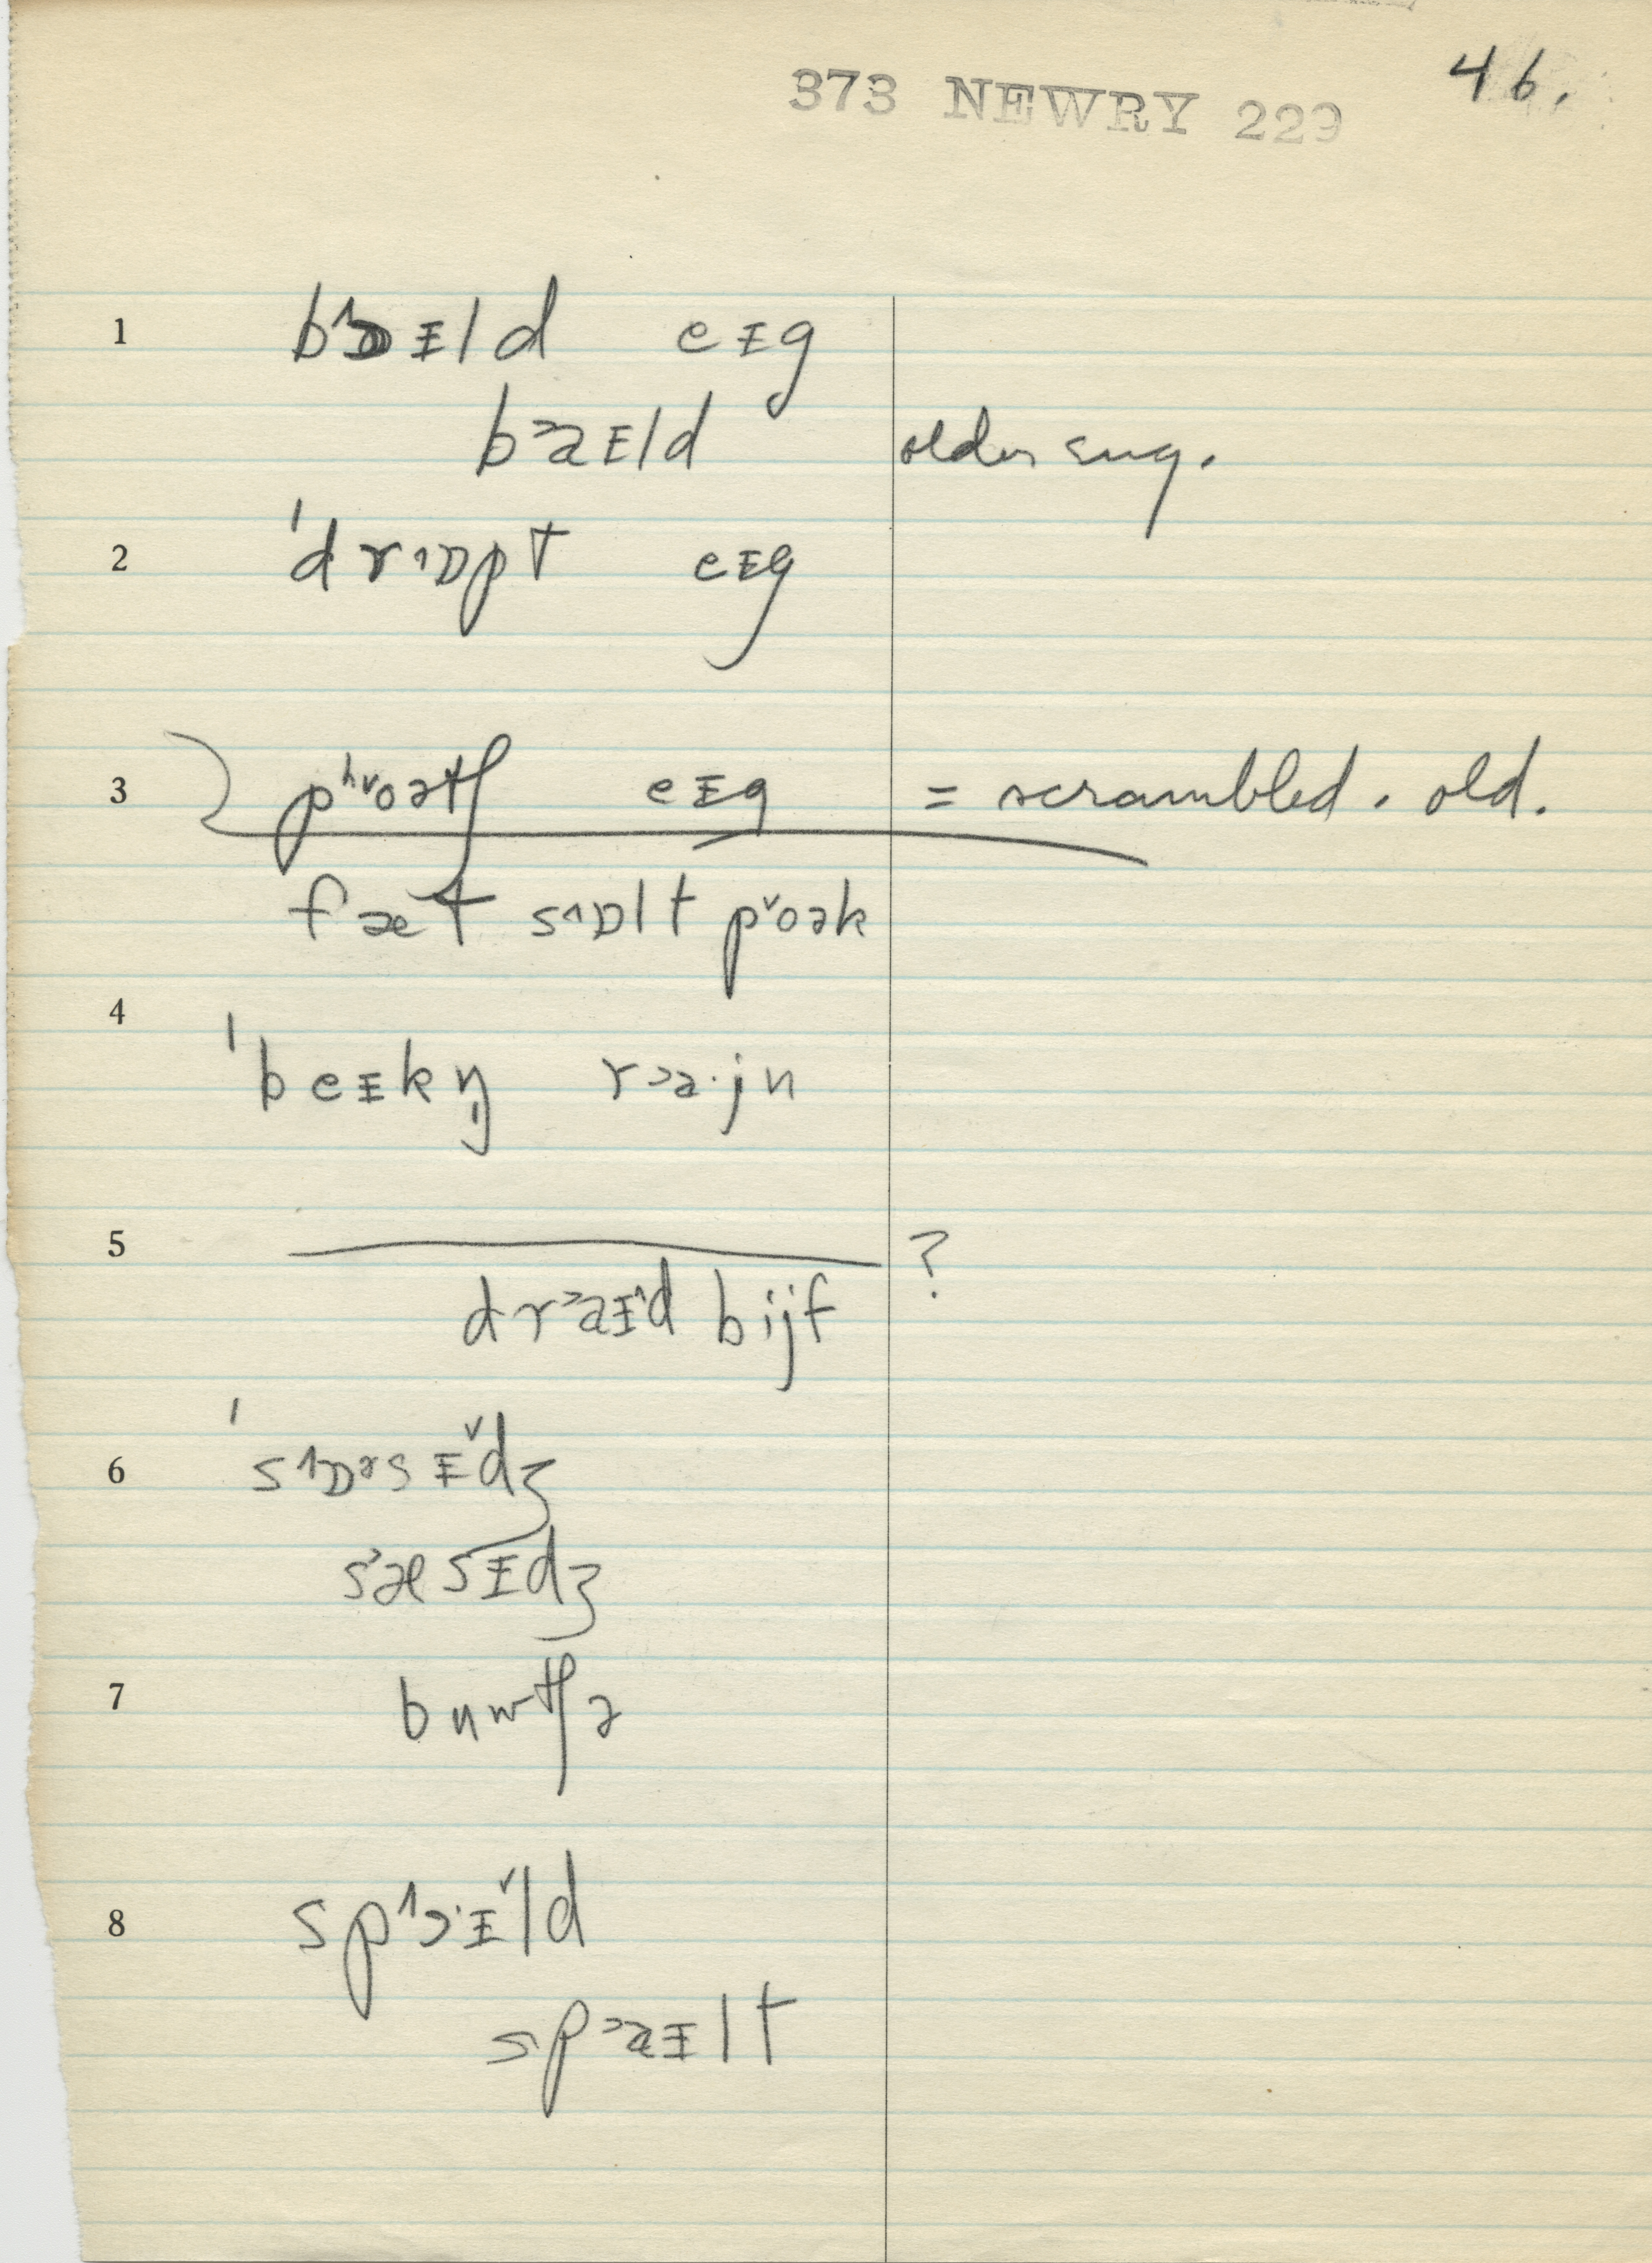 373 NEWRY 229
46.
1 b^ɔᵻld eᵻg
b>aᵻld older sug.
2 ˈdr^ɒpt eᵻg
3 pʰ˅oətʃ eᵻg = scrambled. old.
fæt s^ɒlt p˅oək
4
ˈbeᵻkŋ̩ r>a·jn
5 ?
dr>aᵻ^d bijf
6 ˈs^ɒɚsᵻ˅dʒ
s>æsᵻdʒ
7 bʉwtʃə
8 sp^ɔ·ᵻ˅ld
sp>aᵻlt